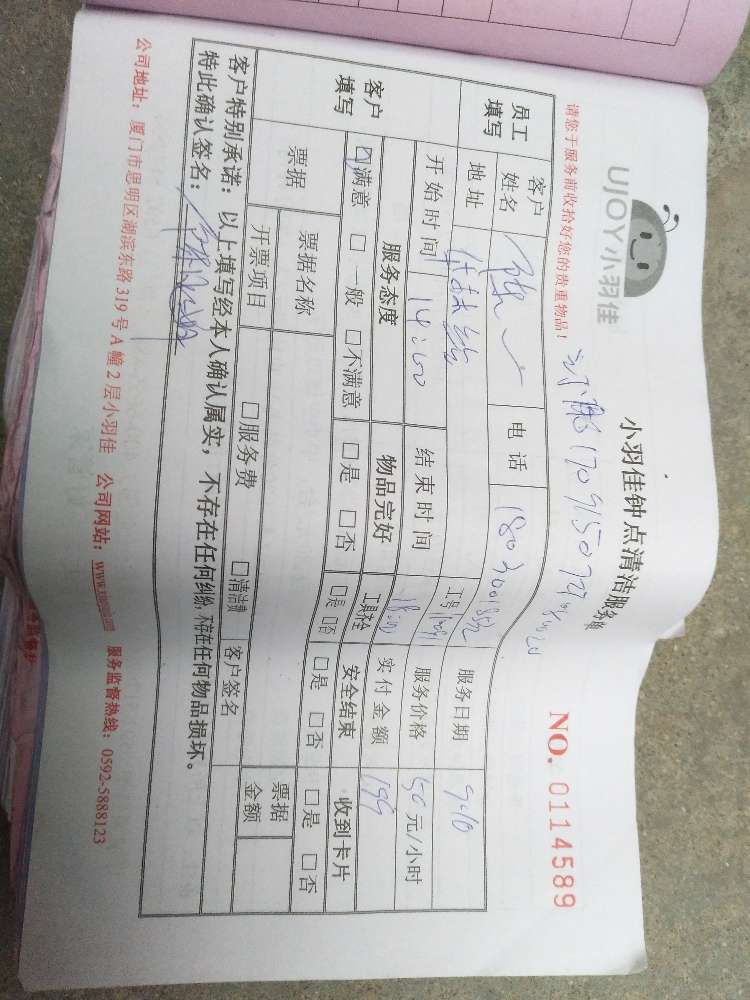 UJOY小羽佳
小羽佳钟点清洁服务单
NO. 0114589
请您于服务前收拾好您的贵重物品！
员工填写 客户姓名 电话 工号 服务日期 9.10
地址 服务价格 50元/小时
开始时间 14:00 结束时间 18:00 实付金额 199
客户填写 服务态度 物品完好 工具齐全 安全结束 收到卡片
☑满意 □一般 □不满意 □是 □否 □是 □否 □是 □否 □是 □否
票据 票据名称 客户签名 票据金额
开票项目 □服务费 □清洁费
客户特别承诺：以上填写经本人确认属实，不存在任何纠纷，不存在任何物品损坏。
特此确认签名：
公司地址：厦门市思明区湖滨东路319号A幢2层小羽佳 公司网站： 服务监督热线：0592-5888123